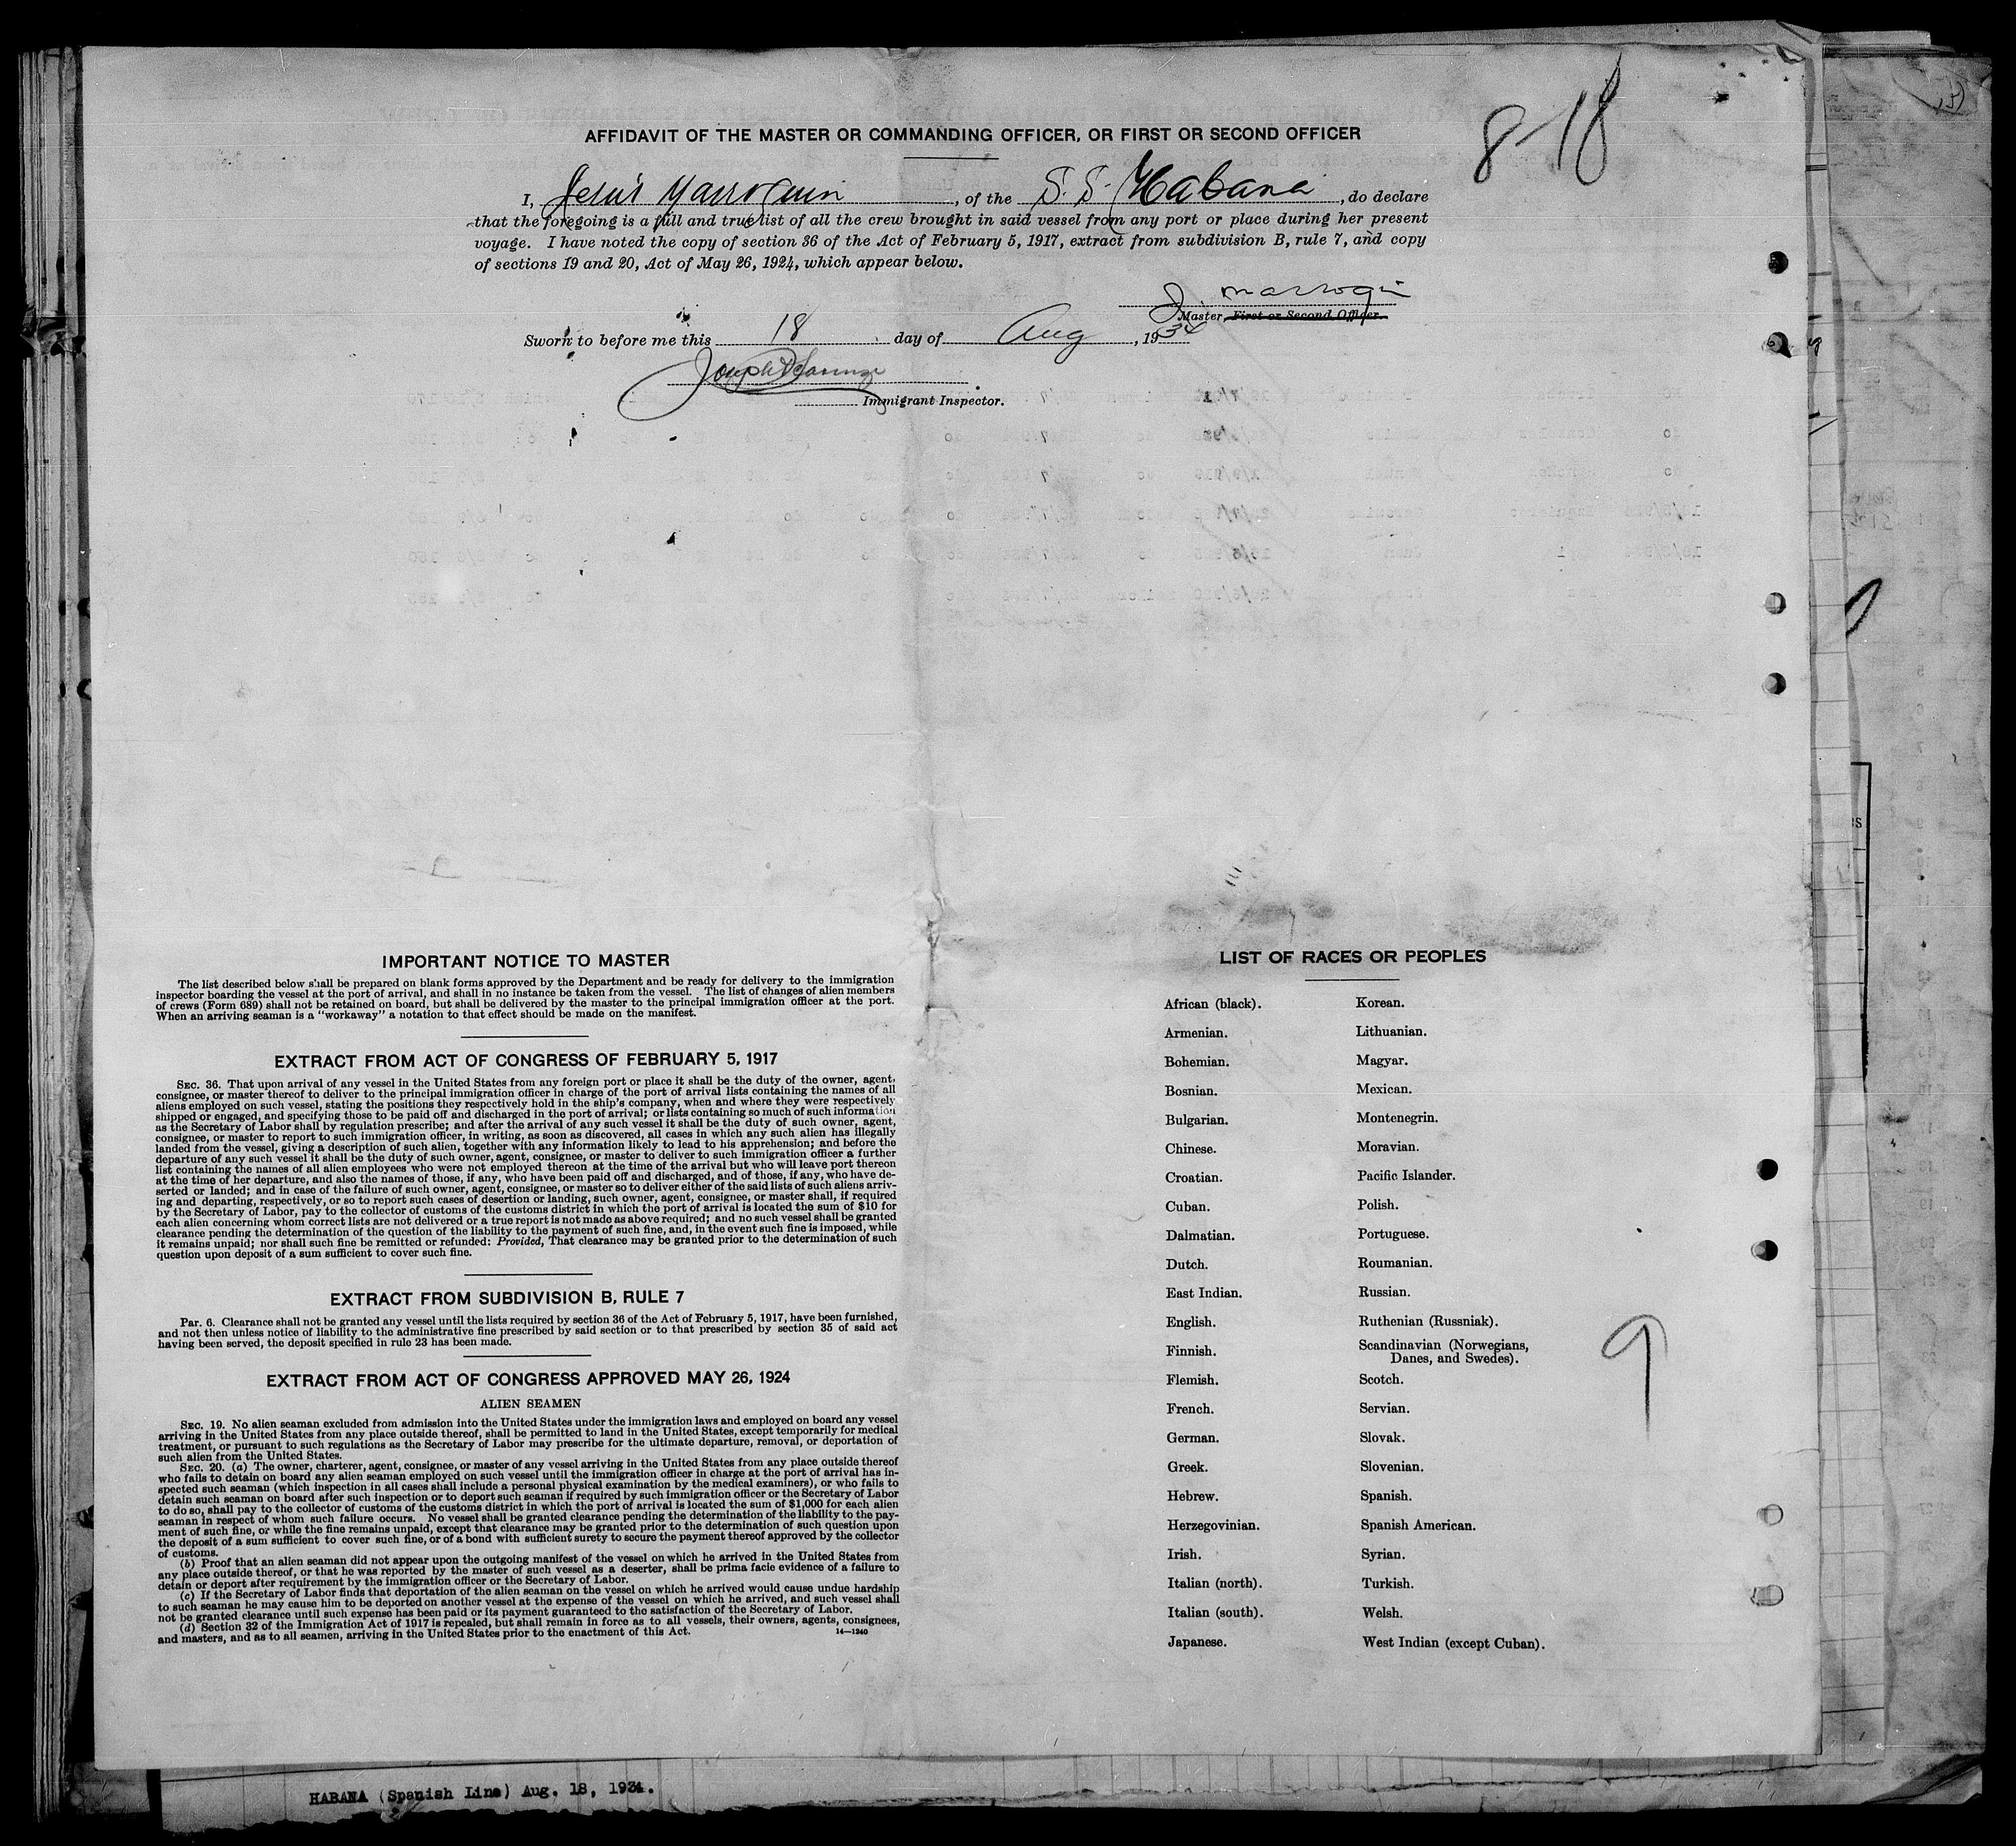 8-18
AFFIDAVIT OF THE MASTER OR COMMANDING OFFICER, OR FIRST OR SECOND OFFICER
I, Jesús Marroquin, of the S. S. Habana, do declare
that the foregoing is a full and true list of all the crew brought in said vessel from any port or place during her present
voyage. I have noted the copy of section 36 of the Act of February 5, 1917, extract from subdivision B, rule 7, and copy
of sections 19 and 20, Act of May 26, 1924, which appear below.
J. Marroqin
Master, First or Second Officer.
Sworn to before me this 18 day of Aug, 1934
Joseph
Immigrant Inspector.
IMPORTANT NOTICE TO MASTER
The list described below shall be prepared on blank forms approved by the Department and be ready for delivery to the immigration
inspector boarding the vessel at the port of arrival, and shall in no instance be taken from the vessel. The list of changes of alien members
of crews (Form 689) shall not be retained on board, but shall be delivered by the master to the principal immigration officer at the port.
When an arriving seaman is a "workaway" a notation to that effect should be made on the manifest.
EXTRACT FROM ACT OF CONGRESS OF FEBRUARY 5, 1917
SEC. 36. That upon arrival of any vessel in the United States from any foreign port or place it shall be the duty of the owner, agent,
consignee, or master thereof to deliver to the principal immigration officer in charge of the port of arrival lists containing the names of all
aliens employed on such vessel, stating the positions they respectively hold in the ship's company, when and where they were respectively
shipped or engaged, and specifying those to be paid off and discharged in the port of arrival; or lists containing so much of such information
as the Secretary of Labor shall by regulation prescribe; and after the arrival of any such vessel it shall be the duty of such owner, agent,
consignee, or master to report to such immigration officer, in writing, as soon as discovered, all cases in which any such alien has illegally
landed from the vessel, giving a description of such alien, together with any information likely to lead to his apprehension; and before the
departure of any such vessel it shall be the duty of such owner, agent, consignee, or master to deliver to such immigration officer a further
list containing the names of all alien employees who were not employed thereon at the time of the arrival but who will leave port thereon
at the time of her departure, and also the names of those, if any, who have been paid off and discharged, and of those, if any, who have de-
serted or landed; and in case of the failure of such owner, agent, consignee, or master so to deliver either of the said lists of such aliens arriv-
ing and departing, respectively, or so to report such cases of desertion or landing, such owner, agent, consignee, or master shall, if required
by the Secretary of Labor, pay to the collector of customs of the customs district in which the port of arrival is located the sum of $10 for
each alien concerning whom correct lists are not delivered or a true report is not made as above required; and no such vessel shall be granted
clearance pending the determination of the question of the liability to the payment of such fine, and, in the event such fine is imposed, while
it remains unpaid; nor shall such fine be remitted or refunded: Provided, That clearance may be granted prior to the determination of such
question upon deposit of a sum sufficient to cover such fine.
EXTRACT FROM SUBDIVISION B, RULE 7
PAR. 6. Clearance shall not be granted any vessel until the lists required by section 36 of the Act of February 5, 1917, have been furnished,
and not then unless notice of liability to the administrative fine prescribed by said section or to that prescribed by section 35 of said act
having been served, the deposit specified in rule 23 has been made.
EXTRACT FROM ACT OF CONGRESS APPROVED MAY 26, 1924
ALIEN SEAMEN
SEC. 19. No alien seaman excluded from admission into the United States under the immigration laws and employed on board any vessel
arriving in the United States from any place outside thereof, shall be permitted to land in the United States, except temporarily for medical
treatment, or pursuant to such regulations as the Secretary of Labor may prescribe for the ultimate departure, removal, or deportation of
such alien from the United States.
SEC. 20. (a) The owner, charterer, agent, consignee, or master of any vessel arriving in the United States from any place outside thereof
who fails to detain on board any alien seaman employed on such vessel until the immigration officer in charge at the port of arrival has in-
spected such seaman (which inspection in all cases shall include a personal physical examination by the medical examiners), or who fails to
detain such seaman on board after such inspection or to deport such seaman if required by such immigration officer or the Secretary of Labor
to do so, shall pay to the collector of customs of the customs district in which the port of arrival is located the sum of $1,000 for each alien
seaman in respect of whom such failure occurs. No vessel shall be granted clearance pending the determination of the liability to the pay-
ment of such fine, or while the fine remains unpaid, except that clearance may be granted prior to the determination of such question upon
the deposit of a sum sufficient to cover such fine, or of a bond with sufficient surety to secure the payment thereof approved by the collector
of customs.
(b) Proof that an alien seaman did not appear upon the outgoing manifest of the vessel on which he arrived in the United States from
any place outside thereof, or that he was reported by the master of such vessel as a deserter, shall be prima facie evidence of a failure to
detain or deport after requirement by the immigration officer or the Secretary of Labor.
(c) If the Secretary of Labor finds that deportation of the alien seaman on the vessel on which he arrived would cause undue hardship
to such seaman he may cause him to be deported on another vessel at the expense of the vessel on which he arrived, and such vessel shall
not be granted clearance until such expense has been paid or its payment guaranteed to the satisfaction of the Secretary of Labor.
(d) Section 32 of the Immigration Act of 1917 is repealed, but shall remain in force as to all vessels, their owners, agents, consignees,
and masters, and as to all seamen, arriving in the United States prior to the enactment of this Act.
14—1240
LIST OF RACES OR PEOPLES
African (black).
Armenian.
Bohemian.
Bosnian.
Bulgarian.
Chinese.
Croatian.
Cuban.
Dalmatian.
Dutch.
East Indian.
English.
Finnish.
Flemish.
French.
German.
Greek.
Hebrew.
Herzegovinian.
Irish.
Italian (north).
Italian (south).
Japanese.
Korean.
Lithuanian.
Magyar.
Mexican.
Montenegrin.
Moravian.
Pacific Islander.
Polish.
Portuguese.
Roumanian.
Russian.
Ruthenian (Russniak).
Scandinavian (Norwegians,
Danes, and Swedes).
Scotch.
Servian.
Slovak.
Slovenian.
Spanish.
Spanish American.
Syrian.
Turkish.
Welsh.
West Indian (except Cuban).
9
HABANA (Spanish Line) Aug. 18, 1934.